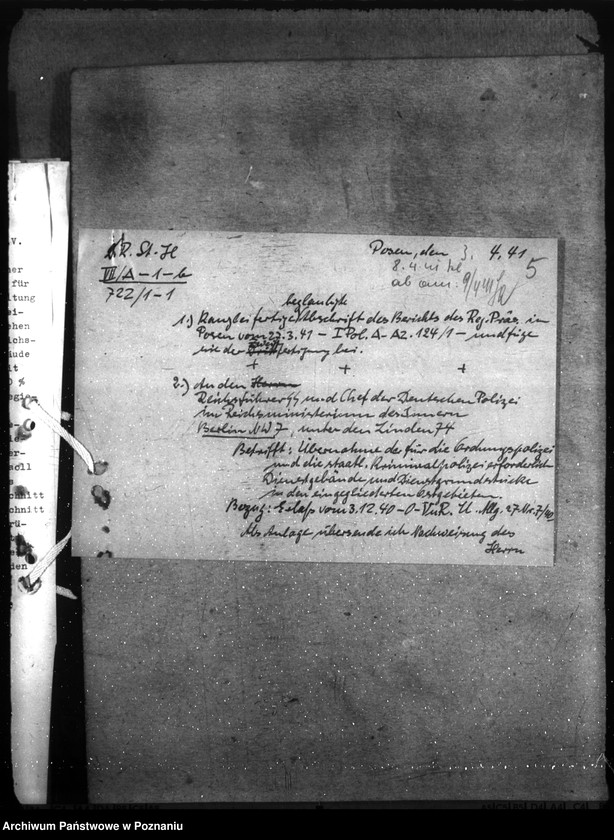 D.R.St.H
VII/A-1-b
722/1-1
Posen, den 3. 4. 41
8.4.41
ab am: 9/4
5
beglaubigte
1.) Kanzleifertige Abschrift des Berichts des Reg. Präs. in
Posen vom 22.3.41 - I Pol. A-AZ. 124/1 - und füge
wie der fertigung bei.
+ + +
2.) An den Herrn
Reichsführer SS und Chef der Deutschen Polizei
im Reichsministerium des Innern
Berlin NW 7, unter den Linden 74
Betrifft: Übernahme der für die Ordnungspolizei
und die staatl. Kriminalpolizei erforderlich
Dienstgebäude und Dienstgrundstücke
in den eingegliederten Ostgebieten.
Bezug: Erlaß vom 3.12.40 -O-VuR. U. Allg. 27 Nr. 7/40
Als Anlage übersende ich Nachweisung des
Herrn
Archiwum Państwowe w Poznaniu